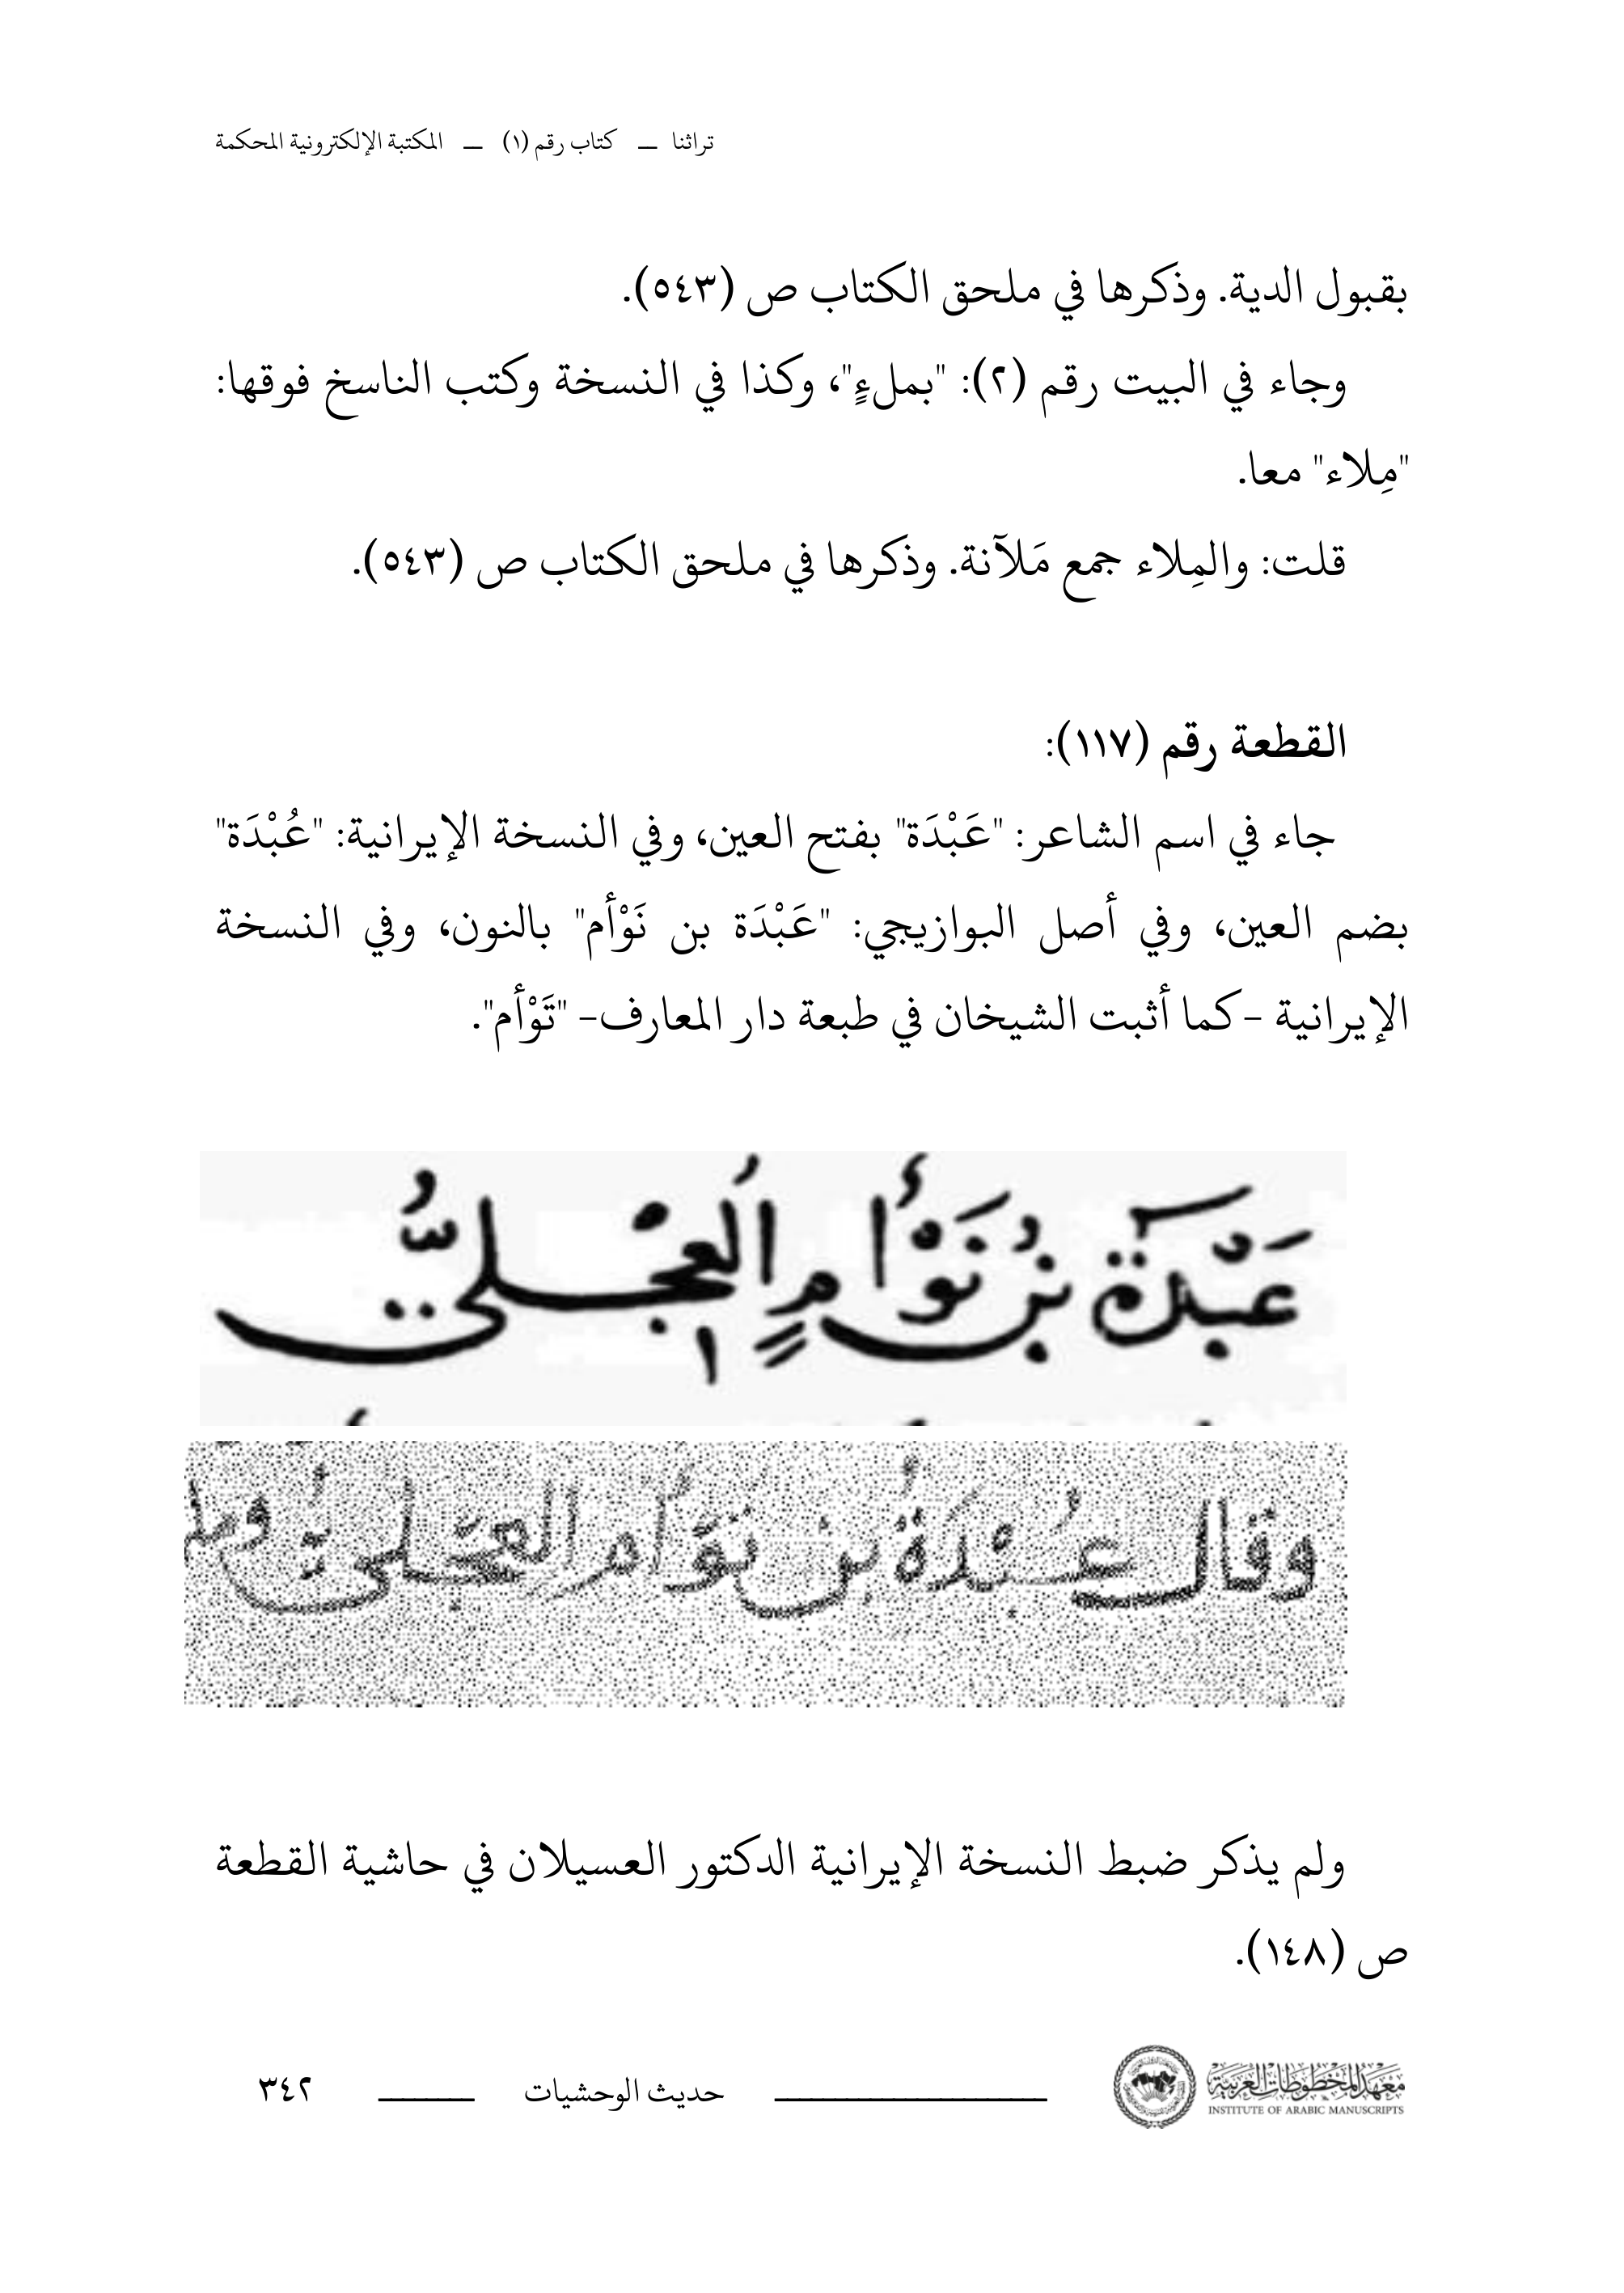 تراثنا — كتاب رقم (١) — المكتبة الإلكترونية المحكمة
بقبول الدية. وذكرها في ملحق الكتاب ص (٥٤٣).
وجاء في البيت رقم (٢): "بملءٍ"، وكذا في النسخة وكتب الناسخ فوقها:
"مِلاء" معا.
قلت: والمِلاء جمع مَلآنة. وذكرها في ملحق الكتاب ص (٥٤٣).
القطعة رقم (١١٧):
جاء في اسم الشاعر: "عَبْدَة" بفتح العين، وفي النسخة الإيرانية: "عُبْدَة"
بضم العين، وفي أصل البوازيجي: "عَبْدَة بن نَوْأم" بالنون، وفي النسخة
الإيرانية -كما أثبت الشيخان في طبعة دار المعارف- "تَوْأم".
عَبْدة بنُ نَوْأمٍ العِجْليُّ
وقال عُبْدَةُ بن تَوْأم العجلي
ولم يذكر ضبط النسخة الإيرانية الدكتور العسيلان في حاشية القطعة
ص (١٤٨).
معهد المخطوطات العربية
INSTITUTE OF ARABIC MANUSCRIPTS
حديث الوحشيات
٣٤٢